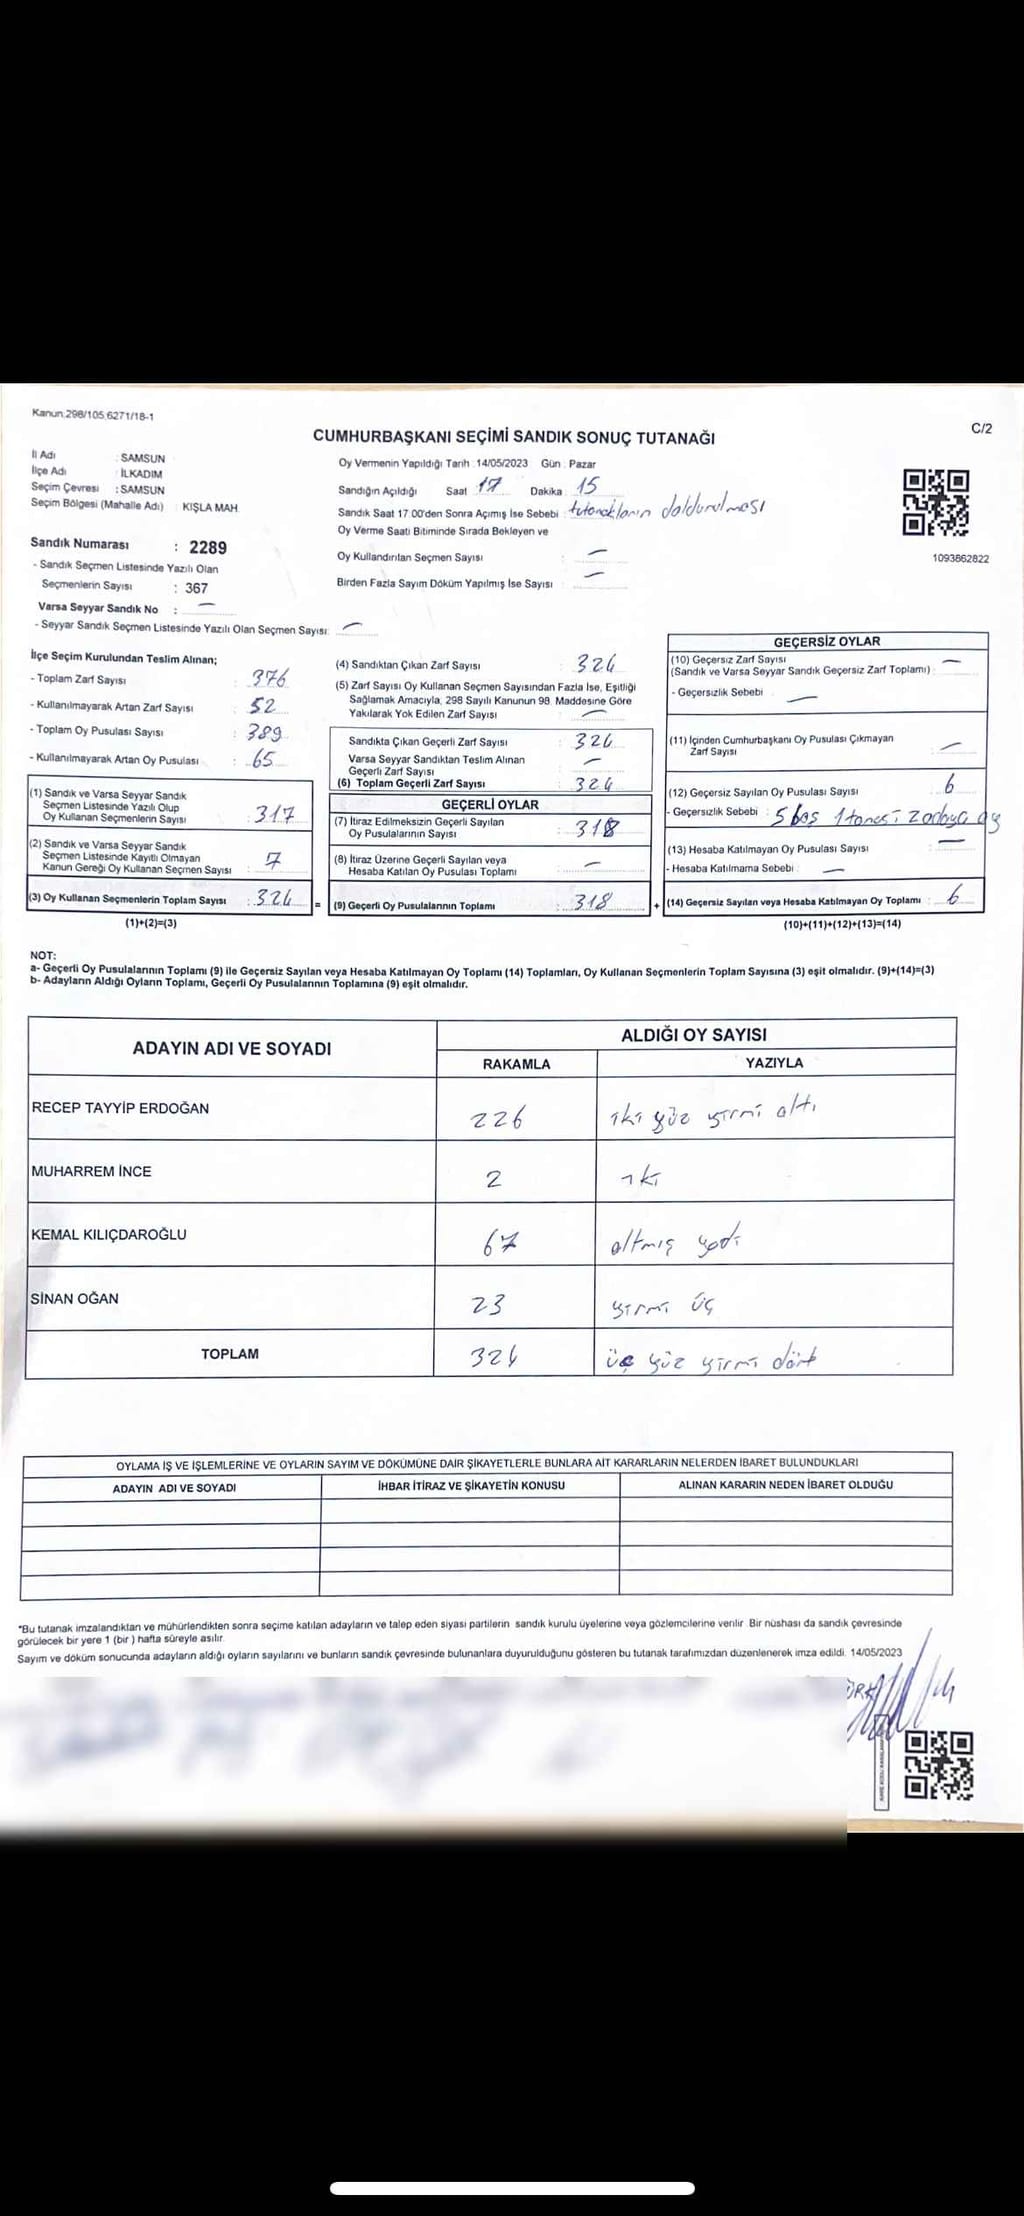 Kanun.298/105.6271/18-1
C/2
CUMHURBAŞKANI SEÇİMİ SANDIK SONUÇ TUTANAĞI
İl Adı : SAMSUN
İlçe Adı : İLKADIM
Seçim Çevresi : SAMSUN
Seçim Bölgesi (Mahalle Adı) : KIŞLA MAH.
Sandık Numarası : 2289
- Sandık Seçmen Listesinde Yazılı Olan
Seçmenlerin Sayısı : 367
Varsa Seyyar Sandık No : —
- Seyyar Sandık Seçmen Listesinde Yazılı Olan Seçmen Sayısı: —
Oy Vermenin Yapıldığı Tarih :14/05/2023 Gün : Pazar
Sandığın Açıldığı Saat 17 Dakika : 15
Sandık Saat 17 00'den Sonra Açımış İse Sebebi : tutanakların doldurulması
Oy Verme Saati Bitiminde Sırada Bekleyen ve
Oy Kullandırılan Seçmen Sayısı : —
Birden Fazla Sayım Döküm Yapılmış İse Sayısı : —
1093862822
İlçe Seçim Kurulundan Teslim Alınan;
- Toplam Zarf Sayısı : 376
- Kullanılmayarak Artan Zarf Sayısı : 52
- Toplam Oy Pusulası Sayısı : 389
- Kullanılmayarak Artan Oy Pusulası : 65
(1) Sandık ve Varsa Seyyar Sandık
Seçmen Listesinde Yazılı Olup
Oy Kullanan Seçmenlerin Sayısı : 317
(2) Sandık ve Varsa Seyyar Sandık
Seçmen Listesinde Kayıtlı Olmayan
Kanun Gereği Oy Kullanan Seçmen Sayısı : 7
(3) Oy Kullanan Seçmenlerin Toplam Sayısı : 324 =
(1)+(2)=(3)
(4) Sandıktan Çıkan Zarf Sayısı : 324
(5) Zarf Sayısı Oy Kullanan Seçmen Sayısından Fazla İse, Eşitliği
Sağlamak Amacıyla, 298 Sayılı Kanunun 98. Maddesine Göre
Yakılarak Yok Edilen Zarf Sayısı : —
Sandıkta Çıkan Geçerli Zarf Sayısı : 324
Varsa Seyyar Sandıktan Teslim Alınan
Geçerli Zarf Sayısı : —
(6) Toplam Geçerli Zarf Sayısı : 324
GEÇERLİ OYLAR
(7) İtiraz Edilmeksizin Geçerli Sayılan
Oy Pusulalarının Sayısı : 318
(8) İtiraz Üzerine Geçerli Sayılan veya
Hesaba Katılan Oy Pusulası Toplamı : —
(9) Geçerli Oy Pusulalarının Toplamı : 318 +
GEÇERSİZ OYLAR
(10) Geçersiz Zarf Sayısı
(Sandık ve Varsa Seyyar Sandık Geçersiz Zarf Toplamı) : —
- Geçersizlik Sebebi : —
(11) İçinden Cumhurbaşkanı Oy Pusulası Çıkmayan
Zarf Sayısı : —
(12) Geçersiz Sayılan Oy Pusulası Sayısı : 6
- Geçersizlik Sebebi : 5 boş 1 tanesi
(13) Hesaba Katılmayan Oy Pusulası Sayısı : —
- Hesaba Katılmama Sebebi : —
(14) Geçersiz Sayılan veya Hesaba Katılmayan Oy Toplamı : 6
(10)+(11)+(12)+(13)=(14)
NOT:
a- Geçerli Oy Pusulalarının Toplamı (9) ile Geçersiz Sayılan veya Hesaba Katılmayan Oy Toplamı (14) Toplamları, Oy Kullanan Seçmenlerin Toplam Sayısına (3) eşit olmalıdır. (9)+(14)=(3)
b- Adayların Aldığı Oyların Toplamı, Geçerli Oy Pusulalarının Toplamına (9) eşit olmalıdır.
ADAYIN ADI VE SOYADI
ALDIĞI OY SAYISI
RAKAMLA YAZIYLA
RECEP TAYYİP ERDOĞAN 226 iki yüz yirmi altı
MUHARREM İNCE 2 iki
KEMAL KILIÇDAROĞLU 67 altmış yedi
SİNAN OĞAN 23 yirmi üç
TOPLAM 324 üç yüz yirmi dört
OYLAMA İŞ VE İŞLEMLERİNE VE OYLARIN SAYIM VE DÖKÜMÜNE DAİR ŞİKAYETLERLE BUNLARA AİT KARARLARIN NELERDEN İBARET BULUNDUKLARI
ADAYIN ADI VE SOYADI İHBAR İTİRAZ VE ŞİKAYETİN KONUSU ALINAN KARARIN NEDEN İBARET OLDUĞU
*Bu tutanak imzalandıktan ve mühürlendikten sonra seçime katılan adayların ve talep eden siyasi partilerin sandık kurulu üyelerine veya gözlemcilerine verilir. Bir nüshası da sandık çevresinde
görülecek bir yere 1 (bir ) hafta süreyle asılır.
Sayım ve döküm sonucunda adayların aldığı oyların sayılarını ve bunların sandık çevresinde bulunanlara duyurulduğunu gösteren bu tutanak tarafımızdan düzenlenerek imza edildi. 14/05/2023